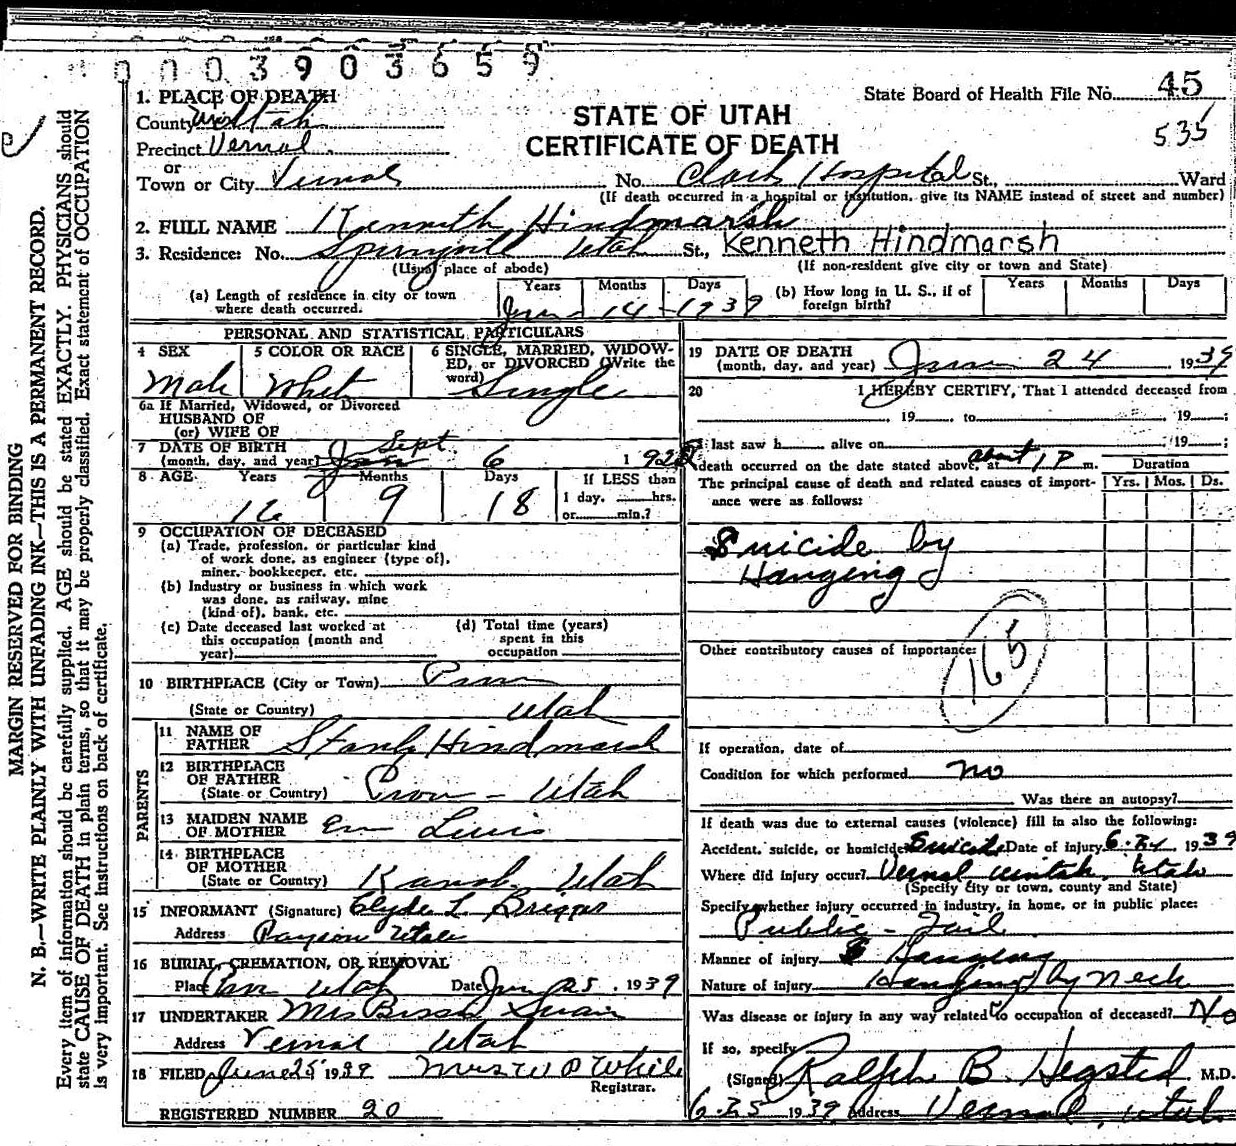 0003903659
MARGIN RESERVED FOR BINDING
N. B.—WRITE PLAINLY WITH UNFADING INK—THIS IS A PERMANENT RECORD.
Every item of information should be carefully supplied. AGE should be stated EXACTLY. PHYSICIANS should
state CAUSE OF DEATH in plain terms, so that it may be properly classified. Exact statement of OCCUPATION
is very important. See instructions on back of certificate.
State Board of Health File No. 45
535
STATE OF UTAH
CERTIFICATE OF DEATH
1. PLACE OF DEATH
County Uintah
Precinct Vernal
or
Town or City Vernal No. Clark Hospital St., Ward
(If death occurred in a hospital or institution, give its NAME instead of street and number)
2. FULL NAME Kenneth Hindmarsh
3. Residence: No. Springville Utah St., Kenneth Hindmarsh
(Usual place of abode) (If non-resident give city or town and State)
(a) Length of residence in city or town where death occurred. Years Months Days June 14-1939
(b) How long in U. S., if of foreign birth? Years Months Days
PERSONAL AND STATISTICAL PARTICULARS
4 SEX Male
5 COLOR OR RACE White
6 SINGLE, MARRIED, WIDOWED, or DIVORCED (Write the word) Single
6a If Married, Widowed, or Divorced
HUSBAND OF
(or) WIFE OF
7 DATE OF BIRTH
(month, day, and year) Sept 6 1922
8 AGE Years 16 Months 9 Days 18 If LESS than
1 day, hrs.
or min.?
9 OCCUPATION OF DECEASED
(a) Trade, profession, or particular kind
of work done, as engineer (type of),
miner, bookkeeper, etc.
(b) Industry or business in which work
was done, as railway, mine
(kind of), bank, etc.
(c) Date deceased last worked at
this occupation (month and
year)
(d) Total time (years)
spent in this
occupation
10 BIRTHPLACE (City or Town) Provo
(State or Country) Utah
PARENTS
11 NAME OF FATHER Stanly Hindmarsh
12 BIRTHPLACE OF FATHER
(State or Country) Provo - Utah
13 MAIDEN NAME OF MOTHER Lewis
14 BIRTHPLACE OF MOTHER
(State or Country) Kanab Utah
15 INFORMANT (Signature) Clyde L. Briggs
Address Payson Utah
16 BURIAL, CREMATION, OR REMOVAL
Place Utah Date Jun 25, 1939
17 UNDERTAKER Mrs Swain
Address Vernal Utah
18 FILED June 25 1939 Mrs W P White
Registrar.
REGISTERED NUMBER 20
19 DATE OF DEATH
(month, day, and year) June 24 1939
20 I HEREBY CERTIFY, That I attended deceased from
19 to 19 ;
I last saw h alive on 19 ;
death occurred on the date stated above, at about 1 P m.
The principal cause of death and related causes of importance were as follows:
Duration
Yrs. Mos. Ds.
Suicide by
Hanging
Other contributory causes of importance:
165
If operation, date of
Condition for which performed no
Was there an autopsy?
If death was due to external causes (violence) fill in also the following:
Accident, suicide, or homicide Suicide Date of injury 6-24 1939
Where did injury occur? Vernal Uintah, Utah
(Specify city or town, county and State)
Specify whether injury occurred in industry, in home, or in public place:
Public - Jail
Manner of injury Hanging
Nature of injury Hanging by Neck
Was disease or injury in any way related to occupation of deceased? No
If so, specify
(Signed) Ralph B. Hegsted M.D.
6-25 1939 Address Vernal, Utah